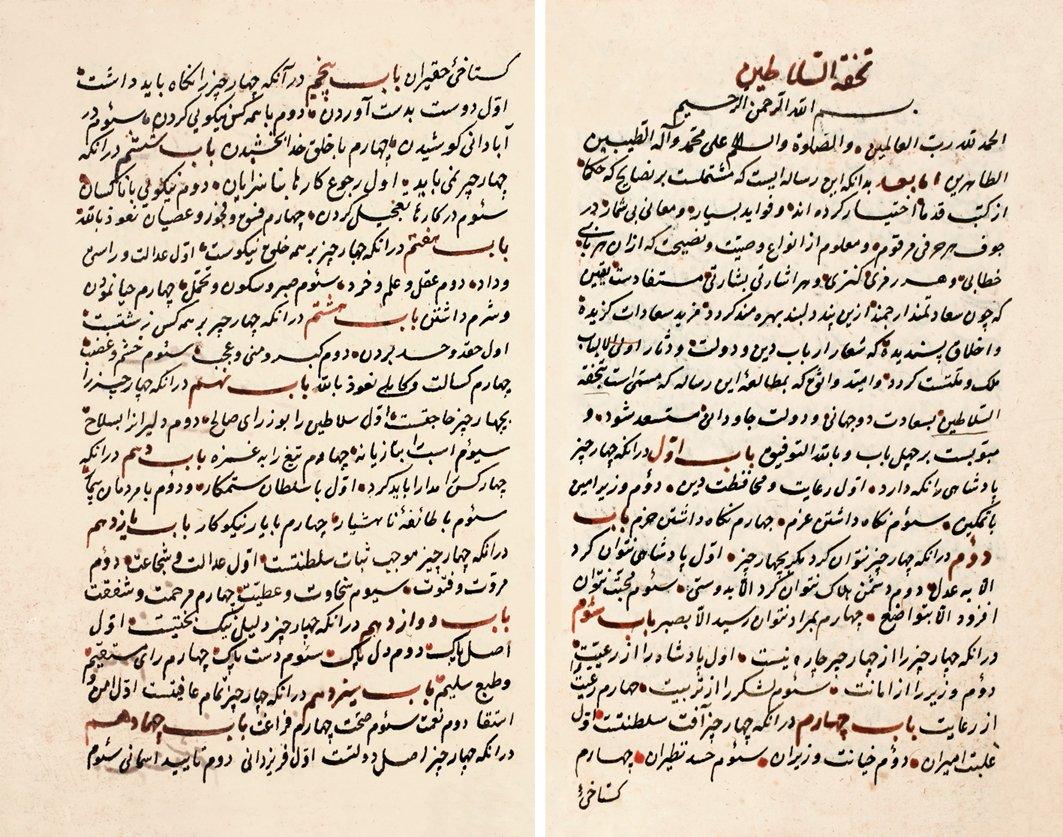 تحفة السلاطین
بسم الله الرحمن الرحیم
الحمد لله رب العالمین و الصلوة والسلم علی محمد وآله الطیبین
الطاهرین اما بعد بدانکه این رساله ایست که مشتملست بر نصایح که حکما
از کتب قدما اختیار کرده اند و فواید بسیار و معانی بی شمار در
جوف هر حرفی مرقوم و معلوم از انواع وصیت و نصیحت که از ان هر بابی
خطابی و هر رمزی کنزی و هر اشارتی بشارتی مستفادست یقین
که چون سعادتمند ارجمند ازین پند دلبند بهره مند کردد مزید سعادات کزیدهٔ
و اخلاق پسندیدهٔ که شعار ارباب دین و دولت و دثار اولی الالباب
ملک و ملتست کردد وامید واثق که بمطالعهٔ این رساله که مسمی است بتحفة
السلاطین بسعادت دوجهانی و دولت جاودانی مستسعد شود و
مبوبست بر چهل باب و بالله التوفیق باب اول درانکه چهار چیز
پادشاهی را نکه دارد اول رعایت و محافظت دین دوم وزیر امین
با تمکین سئوم نکاه داشتن عزم چهارم نکاه داشتن حزم باب
دوم درانکه چهار چیز نتوان کرد مکر بچهار چیز اول پادشاهی نتوان کرد
الا به عدل دوم دشمن هلاک نتوان کرد الا بدوستی سئوم محبت نتوان
افزود الا بتواضع چهارم بمراد نتوان رسید الا بصبر باب سئوم
درانکه چهار چیز را از چهار چیز چاره نیست اول پادشاه را از رعیت
دوم وزیر را از امانت سئوم لشکر را از تربیت چهارم رعیت
از رعایت باب چهارم درانکه چهار چیز آفت سلطنتست اول
غلبت امیران دوم خیانت وزیران سئوم حسد نظیران چهارم
کستاخئ
کستاخئ حقیران باب پنجم در آنکه چهار چیز را نکاه باید داشت
اول دوست بدست آوردن دوم با همه کس نیکویی کردن سئوم در
آبادانی کوشیدن چهارم با خلق خدا بخشیدن باب ششم درانکه
چهار چیز نمی باید اول رجوع کارها بناسزایان دوم نیکویی با ناکسان
سئوم در کارها تعجیل کردن چهارم فسق و فجور و عصیان نعوذ بالله
باب هفتم درانکه چهار چیز بر همه خلق نیکوست اول عدالت و راستی
وداد دوم عقل و علم و خرد سئوم صبر و سکون و تحمل چهارم حیا نمودن
و شرم داشتن باب هشتم درانکه چهار چیز بر همه کس زشتست
اول حقد و حسد بردن دوم کبر و منی و عجب سئوم خشم و غضب
چهارم کسالت و کاهلی نعوذ بالله باب نهم درانکه چهار چیز را
بچهار چیز حاجتست اول سلاطین را بوزرای صالح دوم دلیر را بسلاح
سیوم اسبت را بتازیانه چهاوم تیغ را به غمزه باب دهم درانکه
چهار کس را مدارا باید کرد اول با سلطان ستمکار ودوم با مردمان
سئوم با طائفهٔ ناهشیار چهارم با یار نیکو کار باب یازدهم
درانکه چهار چیز موجب ثبات سلطنتست اول عدالت و شجاعت دوم
مروت و فتوت سیوم سخاوت و عطیت چهارم مرحمت و شفقت
باب دوازدهم درانکه چهار چیز دلیل نیک بختیست اول
اصل پاک دوم دل پاک سئوم دست پاک چهارم رای مستقیم
و طبع سلیم باب سیزدهم درانکه چهار چیز تمام عافیتست اول امن و
استقا دوم نعمت سئوم صحت چهارم فراغت باب چهاردهم
درانکه چهار چیز اصل دولتست اول فر یزدانی دوم تایید اسمانی سئوم